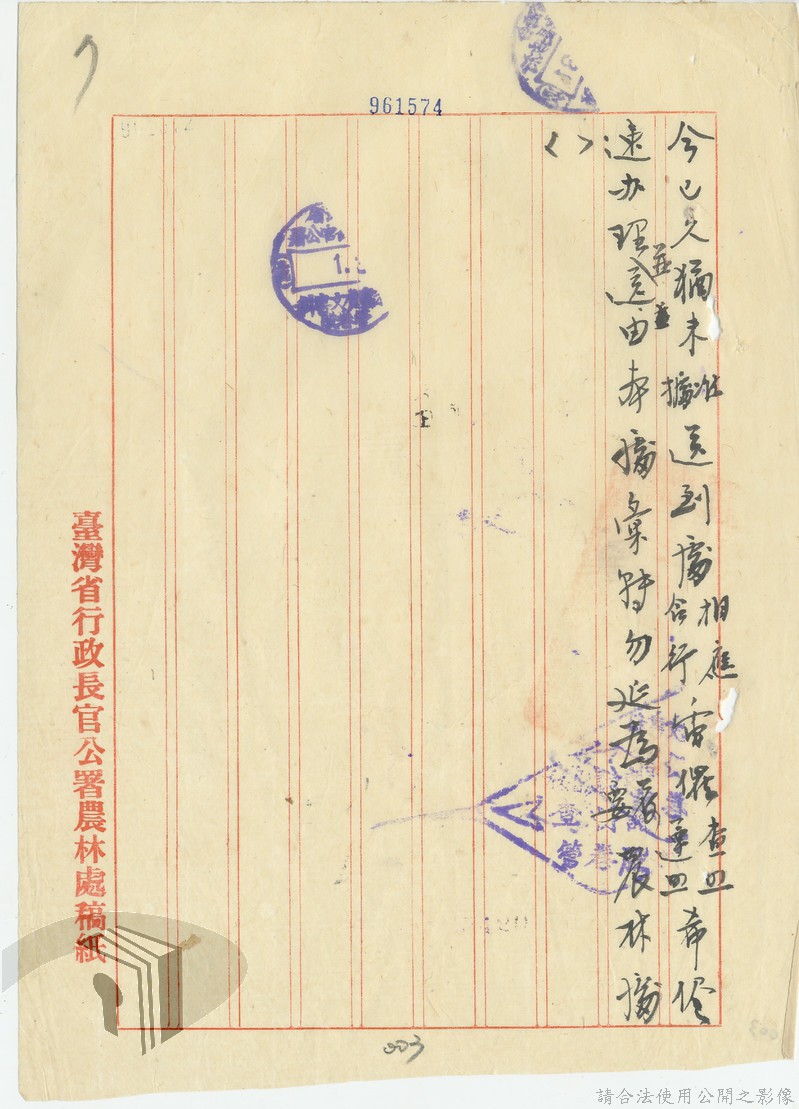 961574
今已久猶未據准送到處相應合行電催查照遵照希從
速办理並送由本處彙轉勿延為荷要農林處
〈 〉
臺灣省行政長官公署農林處稿紙
003
請合法使用公開之影像